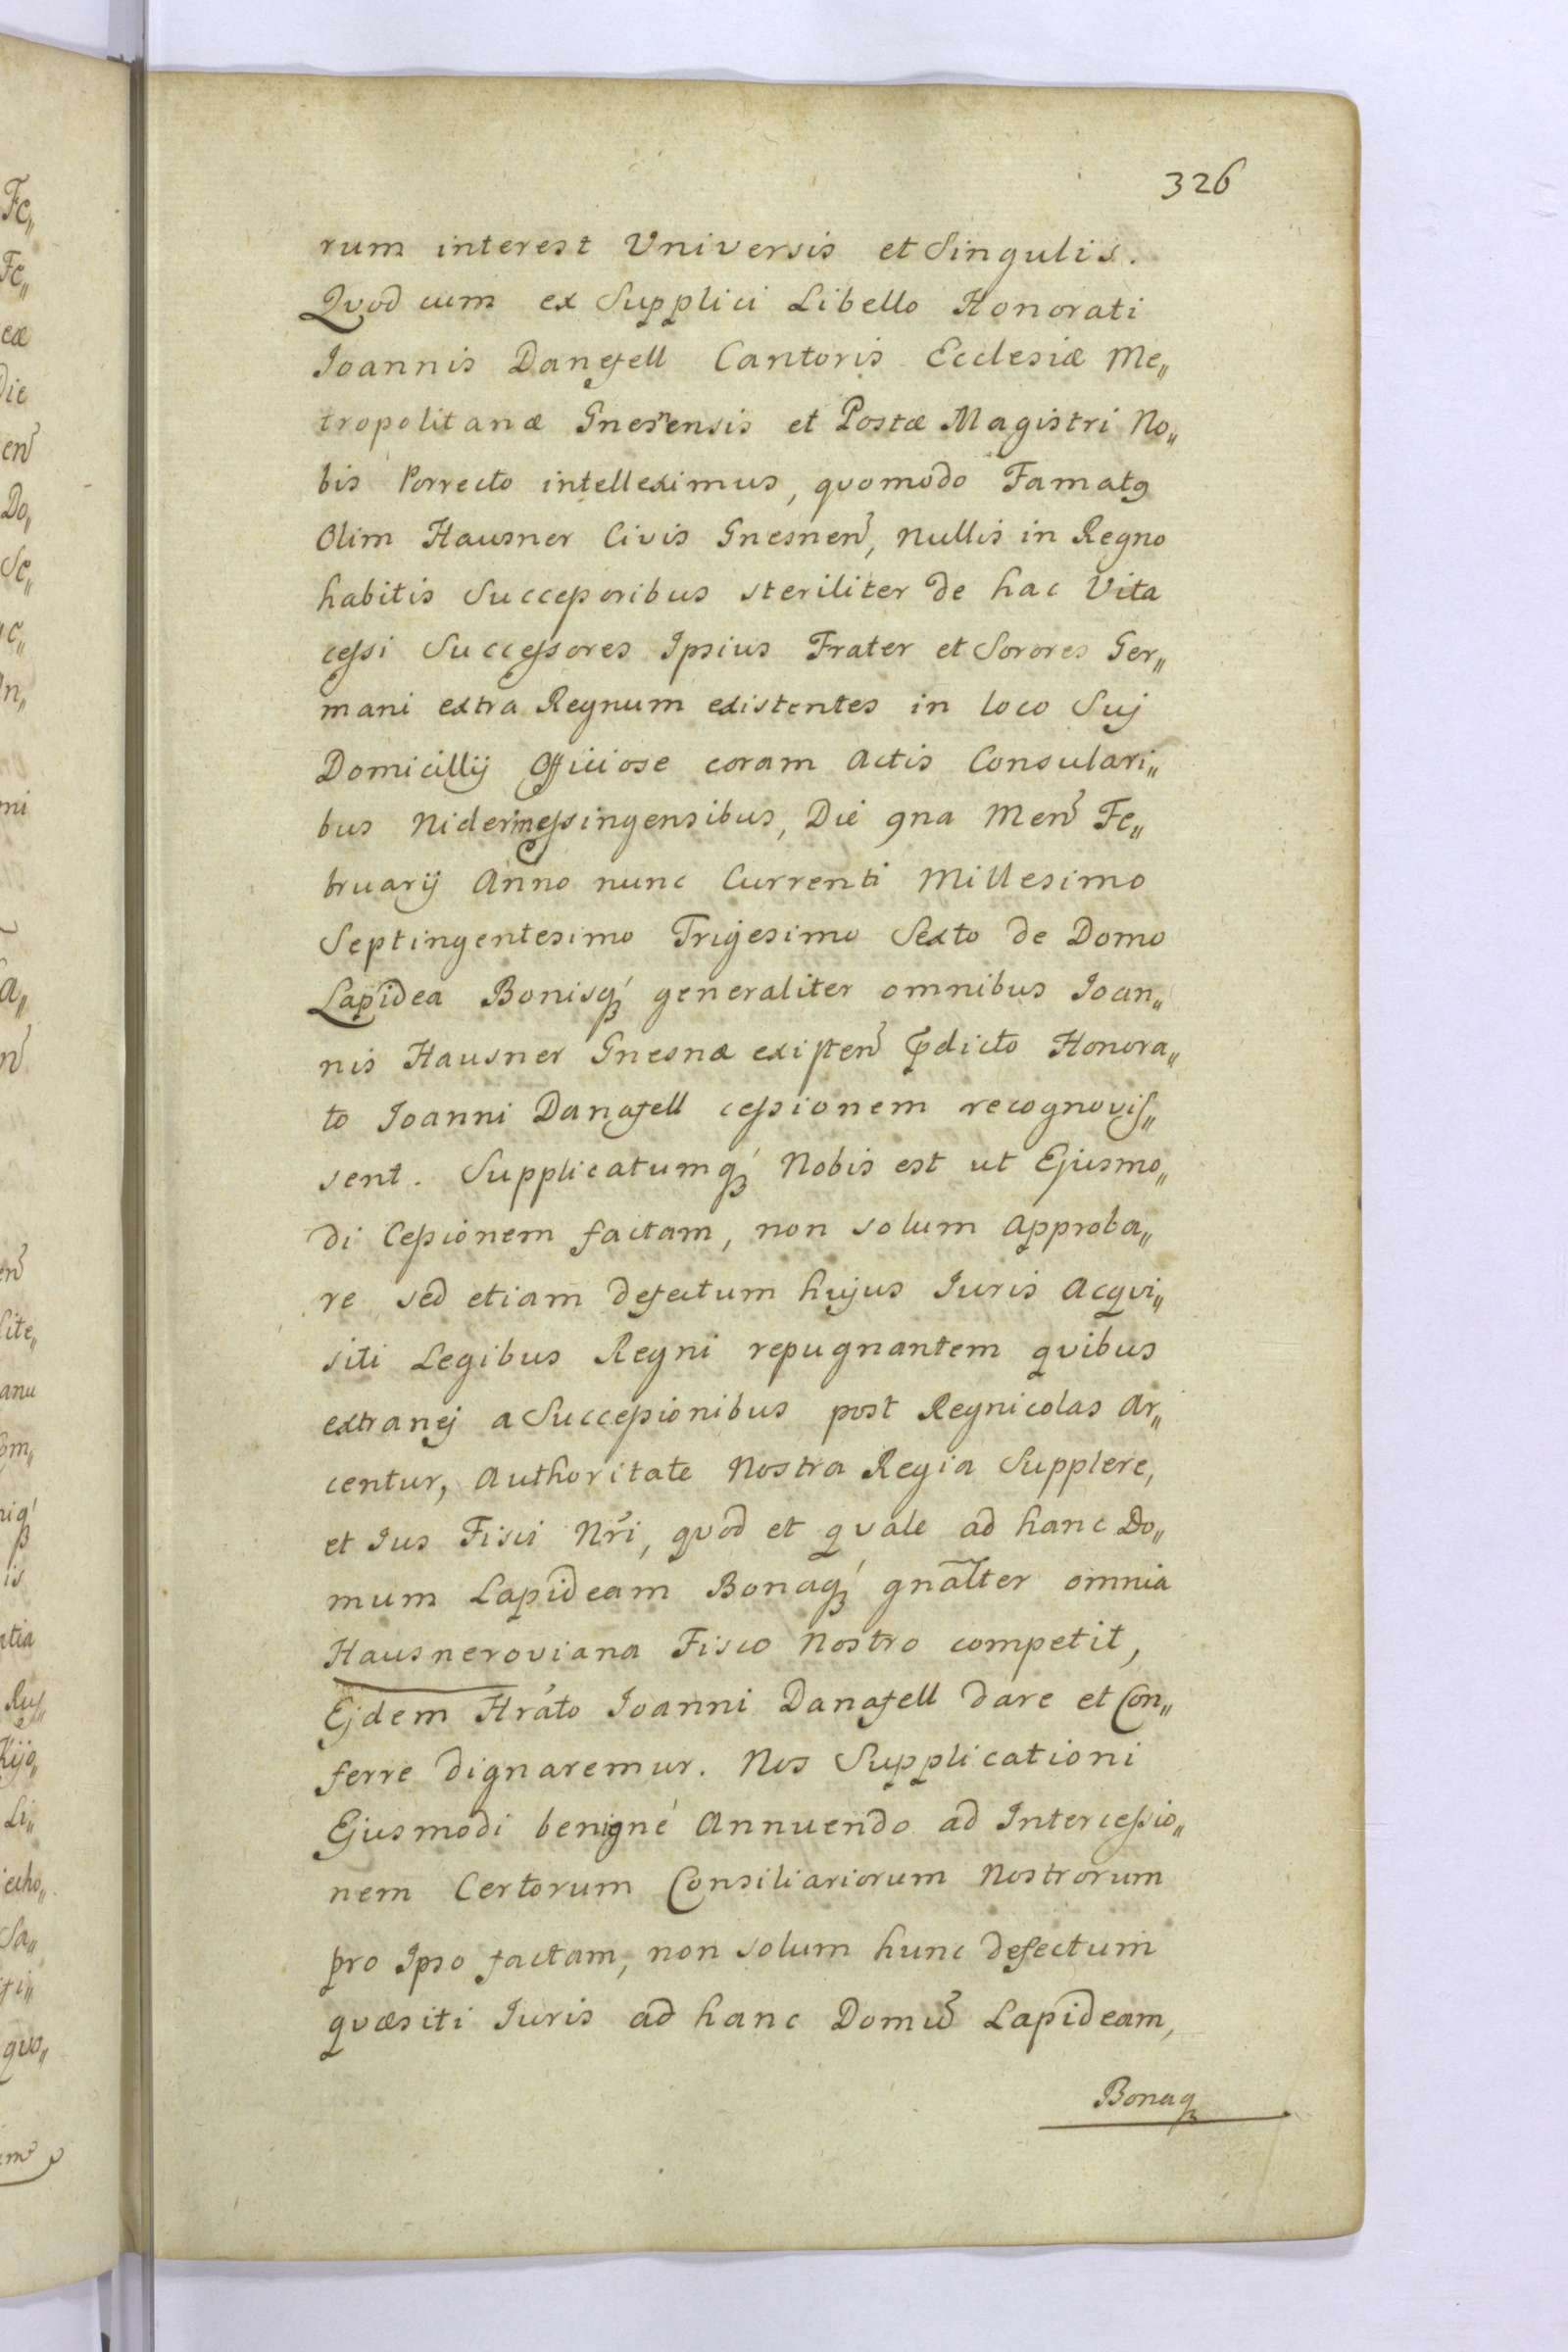 326
rum interest Universis et Singulis.
Qvod cum ex Supplici Libello Honorati
Joannis Danefell Cantoris Ecclesiæ Me„
tropolitanæ Gnesnensis et Postæ Magistri No„
bis Porrecto intelleximus, qvomodo Famatꝯ
Olim Hausner Civis Gnesnen̄, nullis in Regno
habitis Successoribus steriliter de hac Vita
cessi Successores Ipsius Frater et Sorores Ger„
mani extra Regnum existentes in loco Suj
Domicillij Officiose coram Actis Consulari„
bus Nidermessingensibus, Die 9na Men̄ Fe„
bruarij Anno nunc Currenti Millesimo
Septingentesimo Trigesimo Sexto de Domo
Lapidea Bonisq́ꝫ generaliter omnibus Joan„
nis Hausner Gnesnæ existen̄ p̄dicto Honora„
to Joanni Danafell cessionem recognovis„
sent. Supplicatumq́ꝫ Nobis est ut Ejusmo„
di Cessionem factam, non solum Approba„
re sed etiam defectum hujus Juris Acqvi„
siti Legibus Regni repugnantem qvibus
extranej a Successionibus post Regnicolas Ar„
centur, Authoritate Nostra Regia Supplere,
et Jus Fisci Nr̃i, qvod et qvale ad hanc Do„
mum Lapideam Bonaq́ꝫ gnãlter omnia
Hausneroviana Fisco Nostro competit,
Ejdem Hráto Joanni Danafell dare et Con„
ferre dignaremur. Nos Supplicationi
Ejusmodi benigné Annuendo ad Intercessio„
nem Certorum Consiliariorum Nostrorum
pro Ipso factam, non solum hunc defectum
qvæsiti Juris ad hanc Domū Lapideam,
Bonaqꝫ